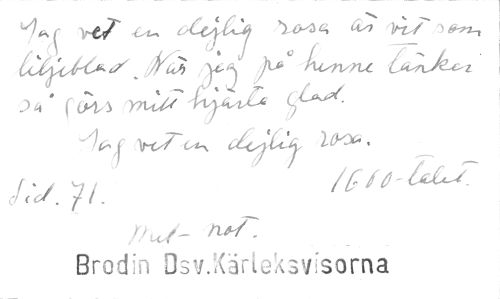 Jag vet en dejlig rosa är vit som
liljeblad. När jag på henne tänker
så görs mitt hjärta glad.
Jag vet en dejlig rosa.
1600-talet.
Sid. 71.
Met not.
Brodin Dsv.Kärleksvisorna